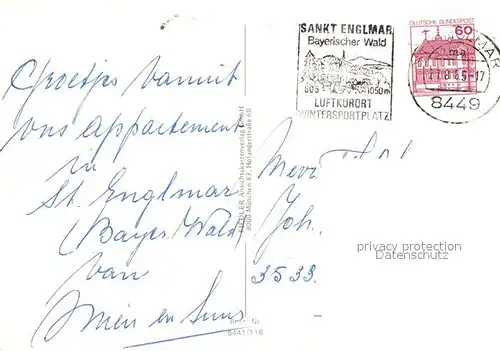 SANKT ENGLMAR
Bayerischer Wald
805 - 1050m
LUFTKURORT
WINTERSPORTPLATZ!
DEUTSCHE BUNDESPOST
60
8449
Groetjes vanuit
ons appartement
in
St. Englmar
(Bayer. Wald)
van
Mien en
Mevr.
Joh.
3533.
FIEDLER Ansichtskartenverlag GmbH
8000 München 83,
Best. Nr.
privacy protection
Datenschutz